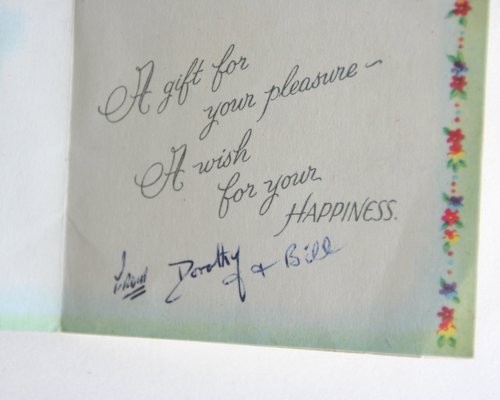 A gift for
your pleasure~
A wish
for your
HAPPINESS.
From Dorothy & Bill